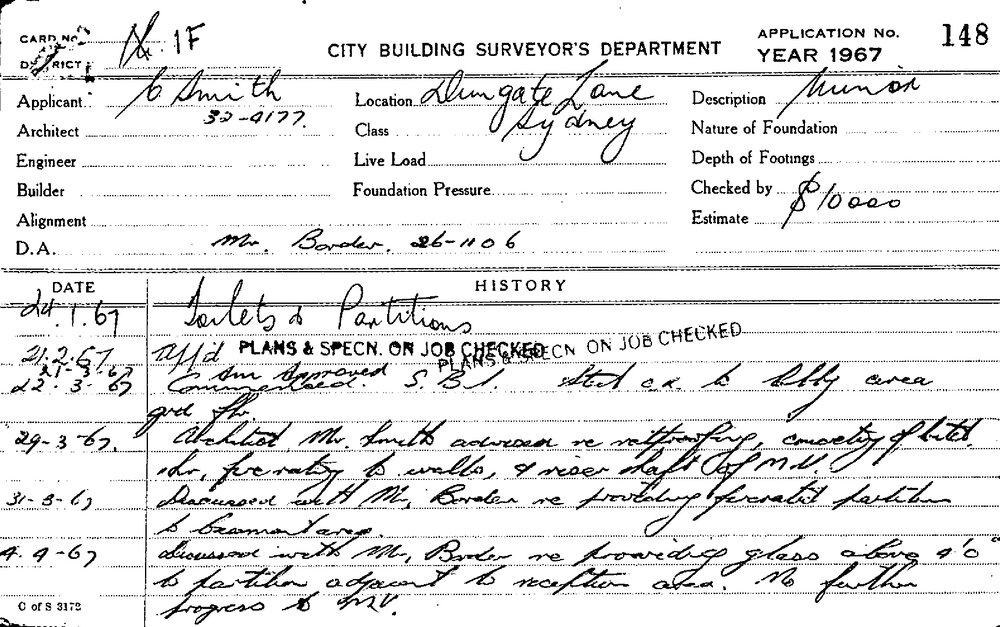 CARD No. 1F
DISTRICT
CITY BUILDING SURVEYOR'S DEPARTMENT
APPLICATION No. 148
YEAR 1967
Applicant C Smith
32-4177.
Location Dungate Lane
Sydney
Description Minor
Architect
Class
Nature of Foundation
Engineer
Live Load
Depth of Footings
Builder
Foundation Pressure
Checked by
Alignment
Estimate $10000
D.A. Mr. Border. 26-1106
DATE
HISTORY
24.1.67 Toilets & Partitions
21.2.67 PLANS & SPECN. ON JOB CHECKED PLANS & SPECN ON JOB CHECKED
21-3-67 Approved
22.3-67 Commenced. area
grd flr.
29-3-67. Architect Mr. Smith advised re
fire rating to walls, & riser shaft of M.V.
31-3-67 Discussed with Mr, Border re providing partition
to area.
4.4-67 Discussed with Mr, Border re providing glass above 4'0"
to partition adjacent to reception area. No further
progress to M.V.
C of S 3172